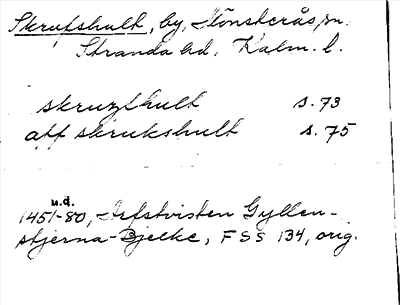 Skrufshult, by, Mönsterås sn.
Stranda hd, Kalm. l.
skruzthult s. 73
aff skrukshult s. 75
u.d.
1451-80, Arfstvisten Gyllen-
stjerna-Bjelke, FSS 134, orig.